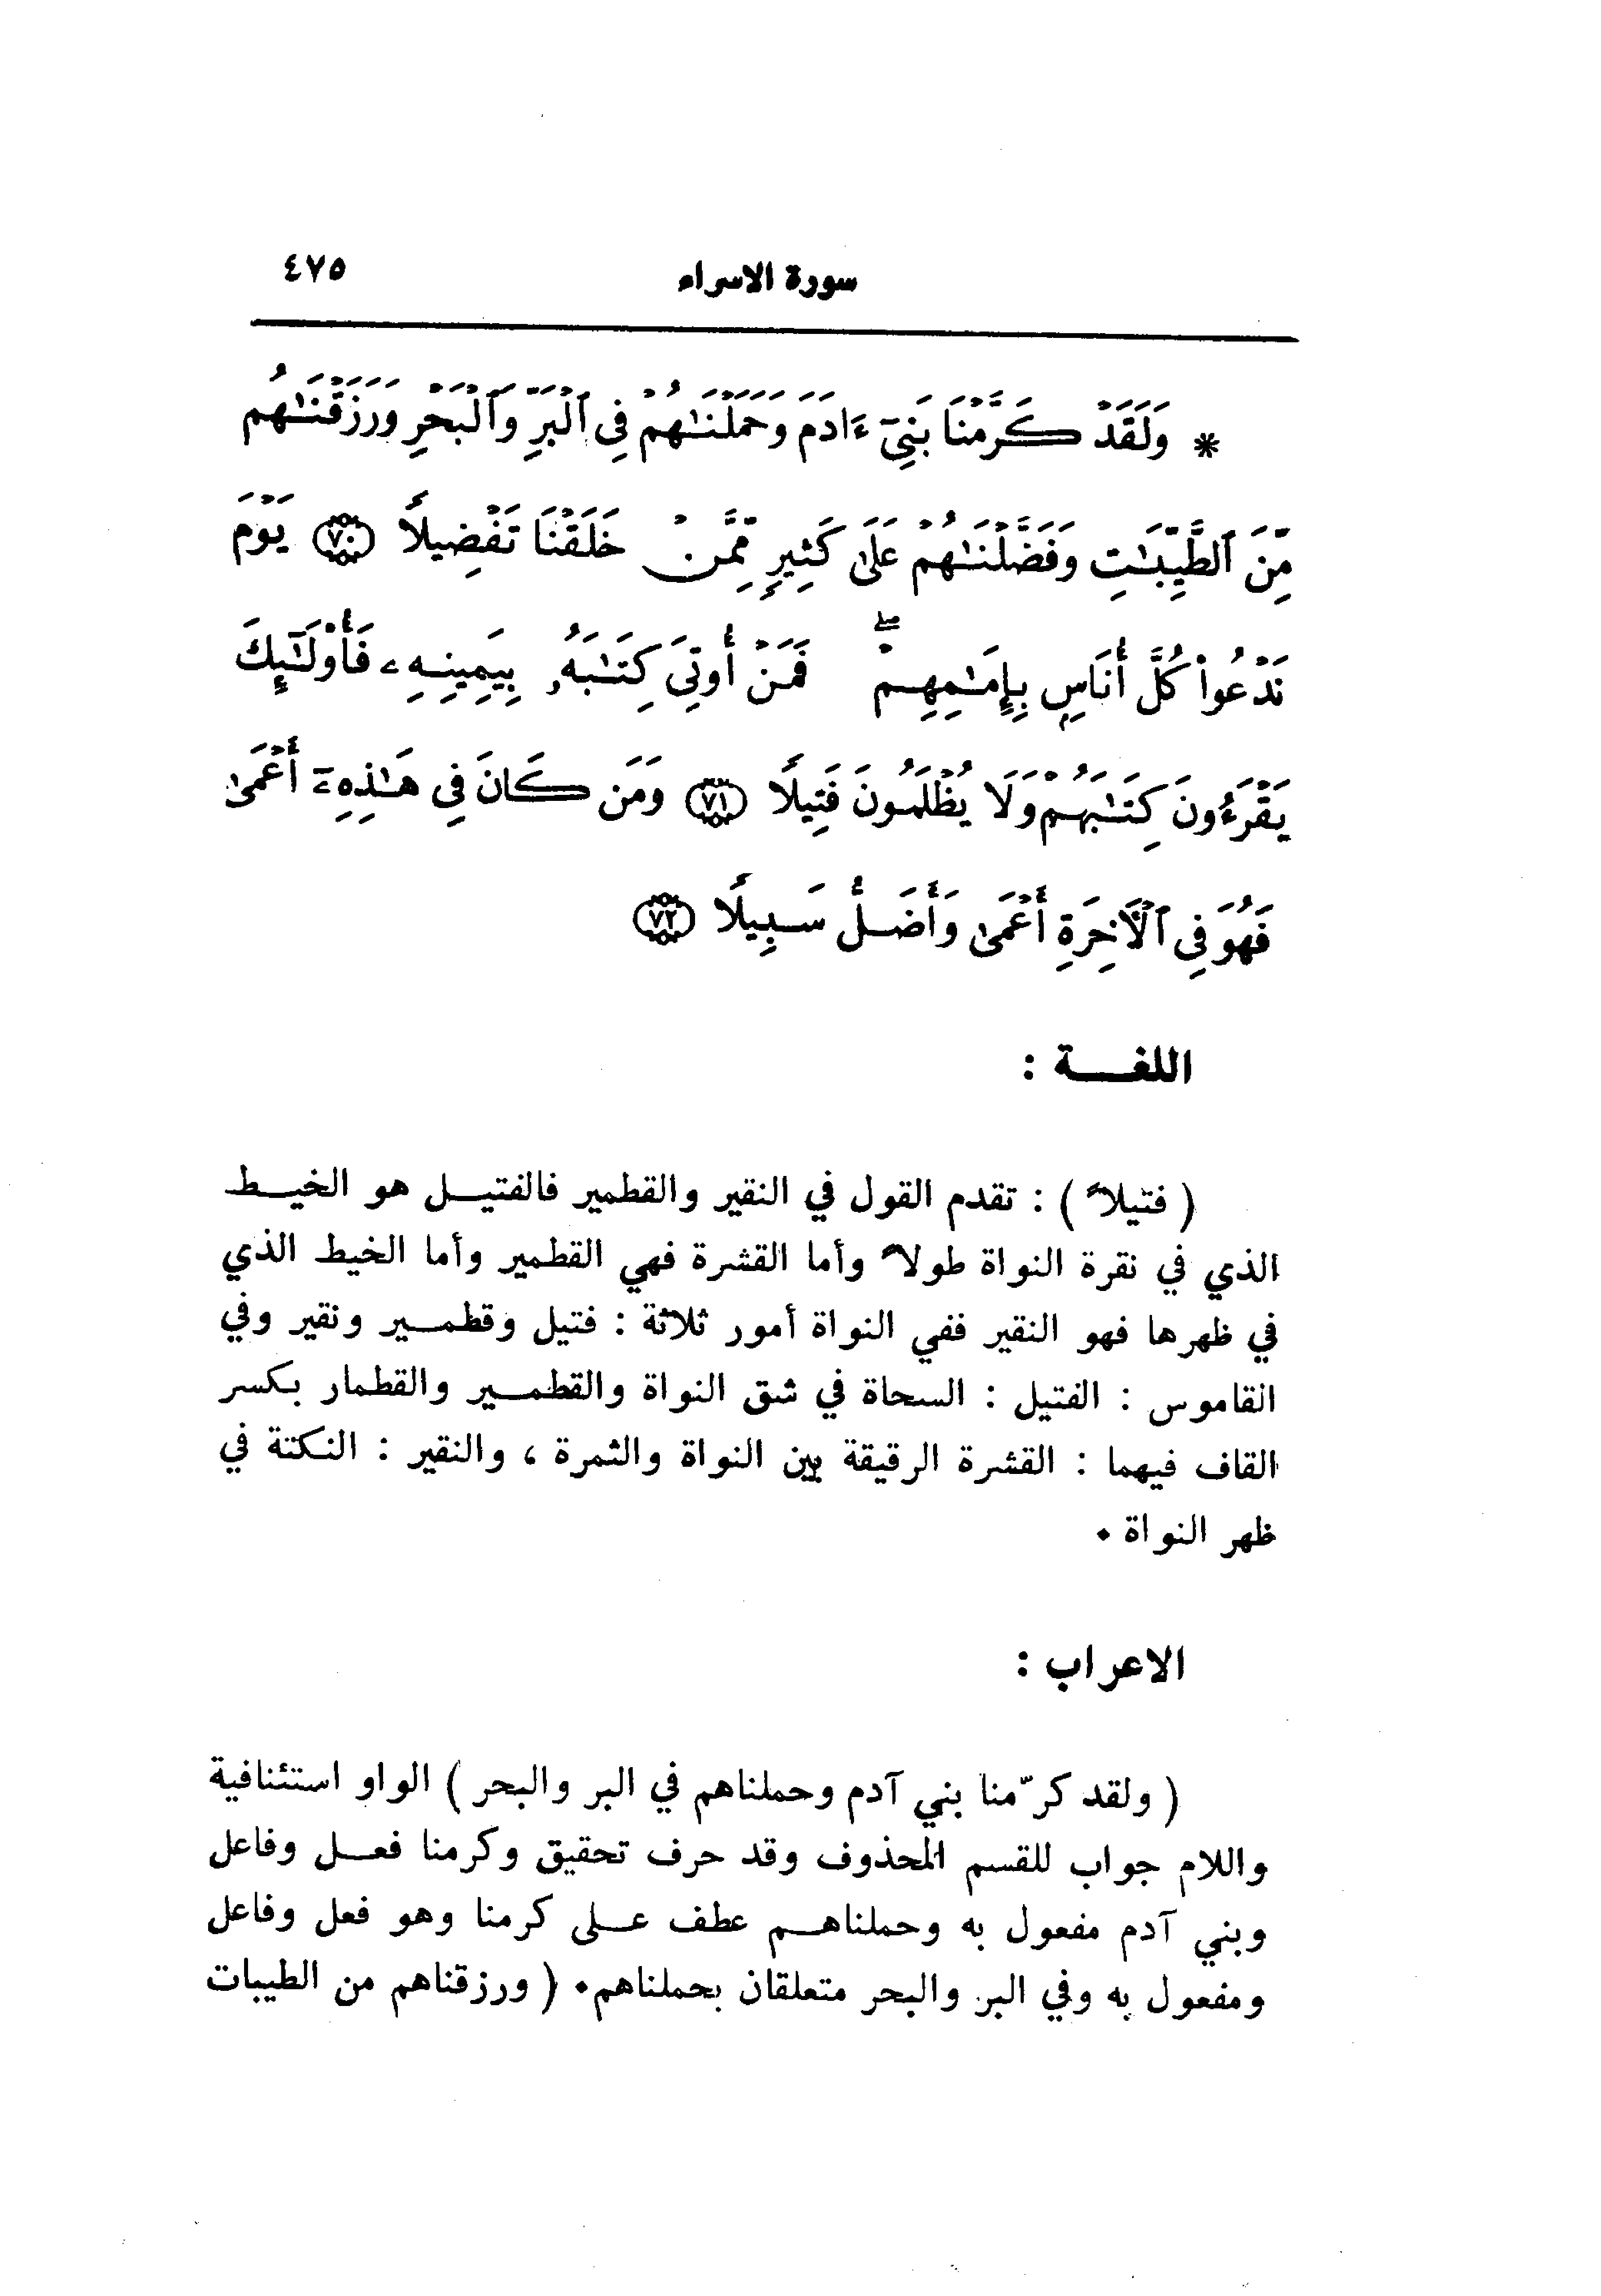 سورة الاسراء ٤٧٥
* وَلَقَدْ كَرَّمْنَا بَنِيٓ ءَادَمَ وَحَمَلْنَٰهُمْ فِي ٱلْبَرِّ وَٱلْبَحْرِ وَرَزَقْنَٰهُم
مِّنَ ٱلطَّيِّبَٰتِ وَفَضَّلْنَٰهُمْ عَلَىٰ كَثِيرٍ مِّمَّنْ خَلَقْنَا تَفْضِيلًا ﴿٧٠﴾ يَوْمَ
نَدْعُوا۟ كُلَّ أُنَاسٍۭ بِإِمَٰمِهِمْ ۖ فَمَنْ أُوتِيَ كِتَٰبَهُۥ بِيَمِينِهِۦ فَأُو۟لَٰٓئِكَ
يَقْرَءُونَ كِتَٰبَهُمْ وَلَا يُظْلَمُونَ فَتِيلًا ﴿٧١﴾ وَمَن كَانَ فِي هَٰذِهِۦٓ أَعْمَىٰ
فَهُوَ فِي ٱلْأَخِرَةِ أَعْمَىٰ وَأَضَلُّ سَبِيلًا ﴿٧٢﴾
اللغـــة :
( فتيلاً ) : تقدم القول في النقير والقطمير فالفتيـل هو الخيـط
الذي في نقرة النواة طولاً وأما القشرة فهي القطمير وأما الخيط الذي
في ظهرها فهو النقير ففي النواة أمور ثلاثة : فتيل وقطمـير ونقير وفي
القاموس : الفتيل : السحاة في شق النواة والقطمـير والقطمار بكسر
القاف فيهما : القشرة الرقيقة بين النواة والثمرة ، والنقير : النكتة في
ظهر النواة ٠
الاعراب :
( ولقد كرّمنا بني آدم وحملناهم في البر والبحر ) الواو استئنافية
واللام جواب للقسم المحذوف وقد حرف تحقيق وكرمنا فعـل وفاعل
وبني آدم مفعول به وحملناهـم عطف عـلى كرمنا وهو فعل وفاعل
ومفعول به وفي البر والبحر متعلقان بحملناهم٠ ( ورزقناهم من الطيبات